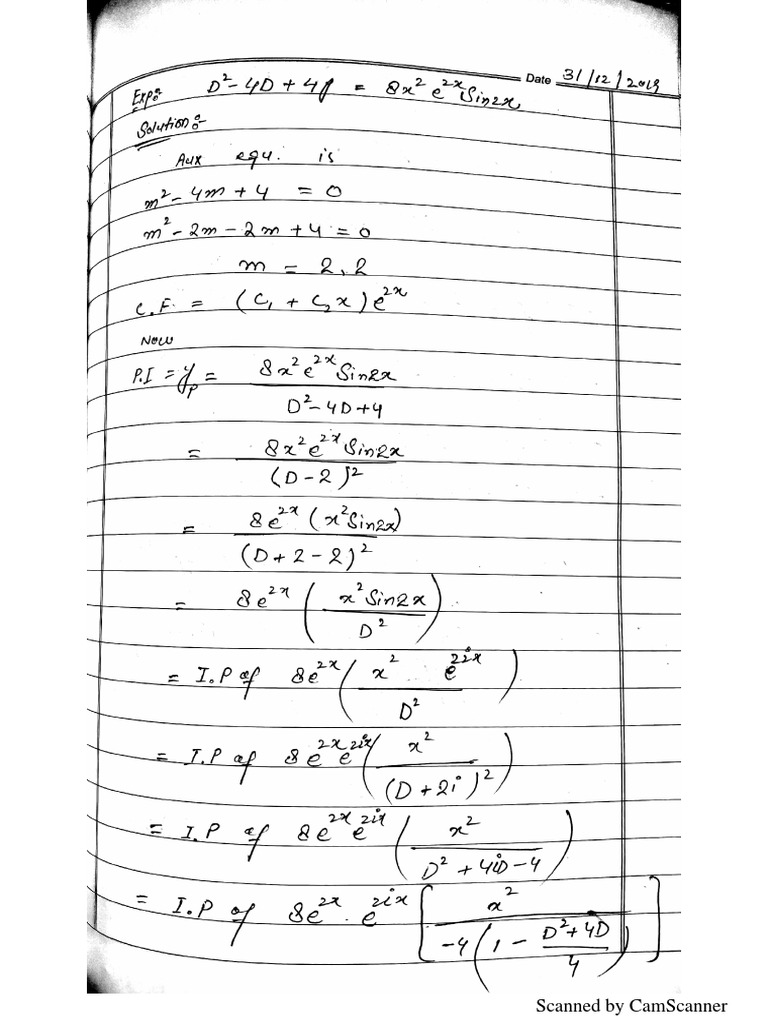 Date 31/12/2019
Exp:- D²-4D+4y = 8x² e^2x Sin2x
Solution:-
Aux equ. is
m²-4m+4 = 0
m²-2m-2m+4=0
m = 2,2
C.F. = (C₁ + C₂x)e^2x
Now
P.I = y_p = 8x²e^2x Sin2x
D²-4D+4
= 8x²e^2x Sin2x
(D-2)²
= 8e^2x (x²Sin2x)
(D+2-2)²
= 8e^2x ( x²Sin2x
D² )
= I.P of 8e^2x ( x² e^2ix
D² )
= I.P of 8e^2x e^2ix ( x²
(D+2i)² )
= I.P of 8e^2x e^2ix ( x²
D²+4iD-4 )
= I.P of 8e^2x . e^2ix [ x²
-4(1 - D²+4D
4 ) ]
Scanned by CamScanner